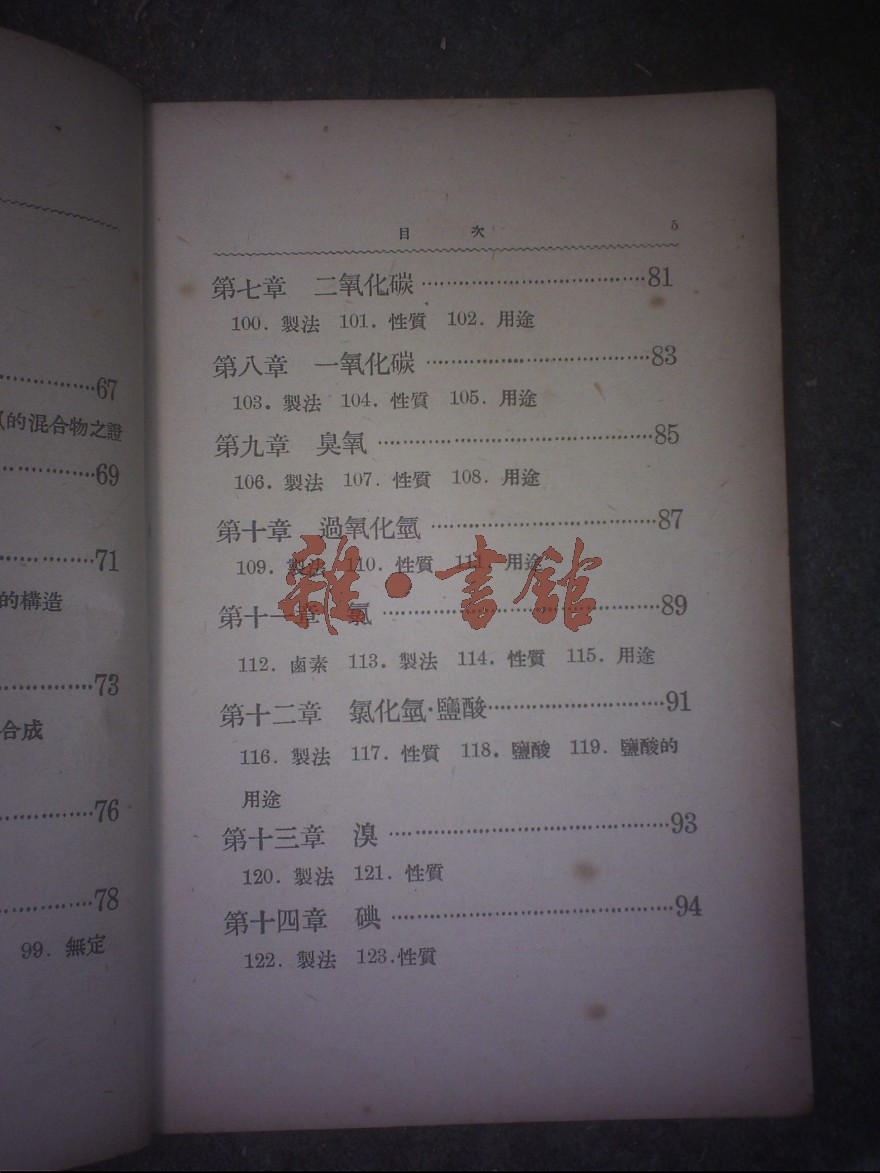 67
的混合物之證
69
71
的構造
73
合成
76
78
99. 無定
目 次 5
第七章 二氧化碳 81
100. 製法 101. 性質 102. 用途
第八章 一氧化碳 83
103. 製法 104. 性質 105. 用途
第九章 臭氧 85
106. 製法 107. 性質 108. 用途
第十章 過氧化氫 87
109. 製法 110. 性質 111. 用途
第十一章 氯 89
112. 鹵素 113. 製法 114. 性質 115. 用途
第十二章 氯化氫·鹽酸 91
116. 製法 117. 性質 118. 鹽酸 119. 鹽酸的
用途
第十三章 溴 93
120. 製法 121. 性質
第十四章 碘 94
122. 製法 123. 性質
雜·書館